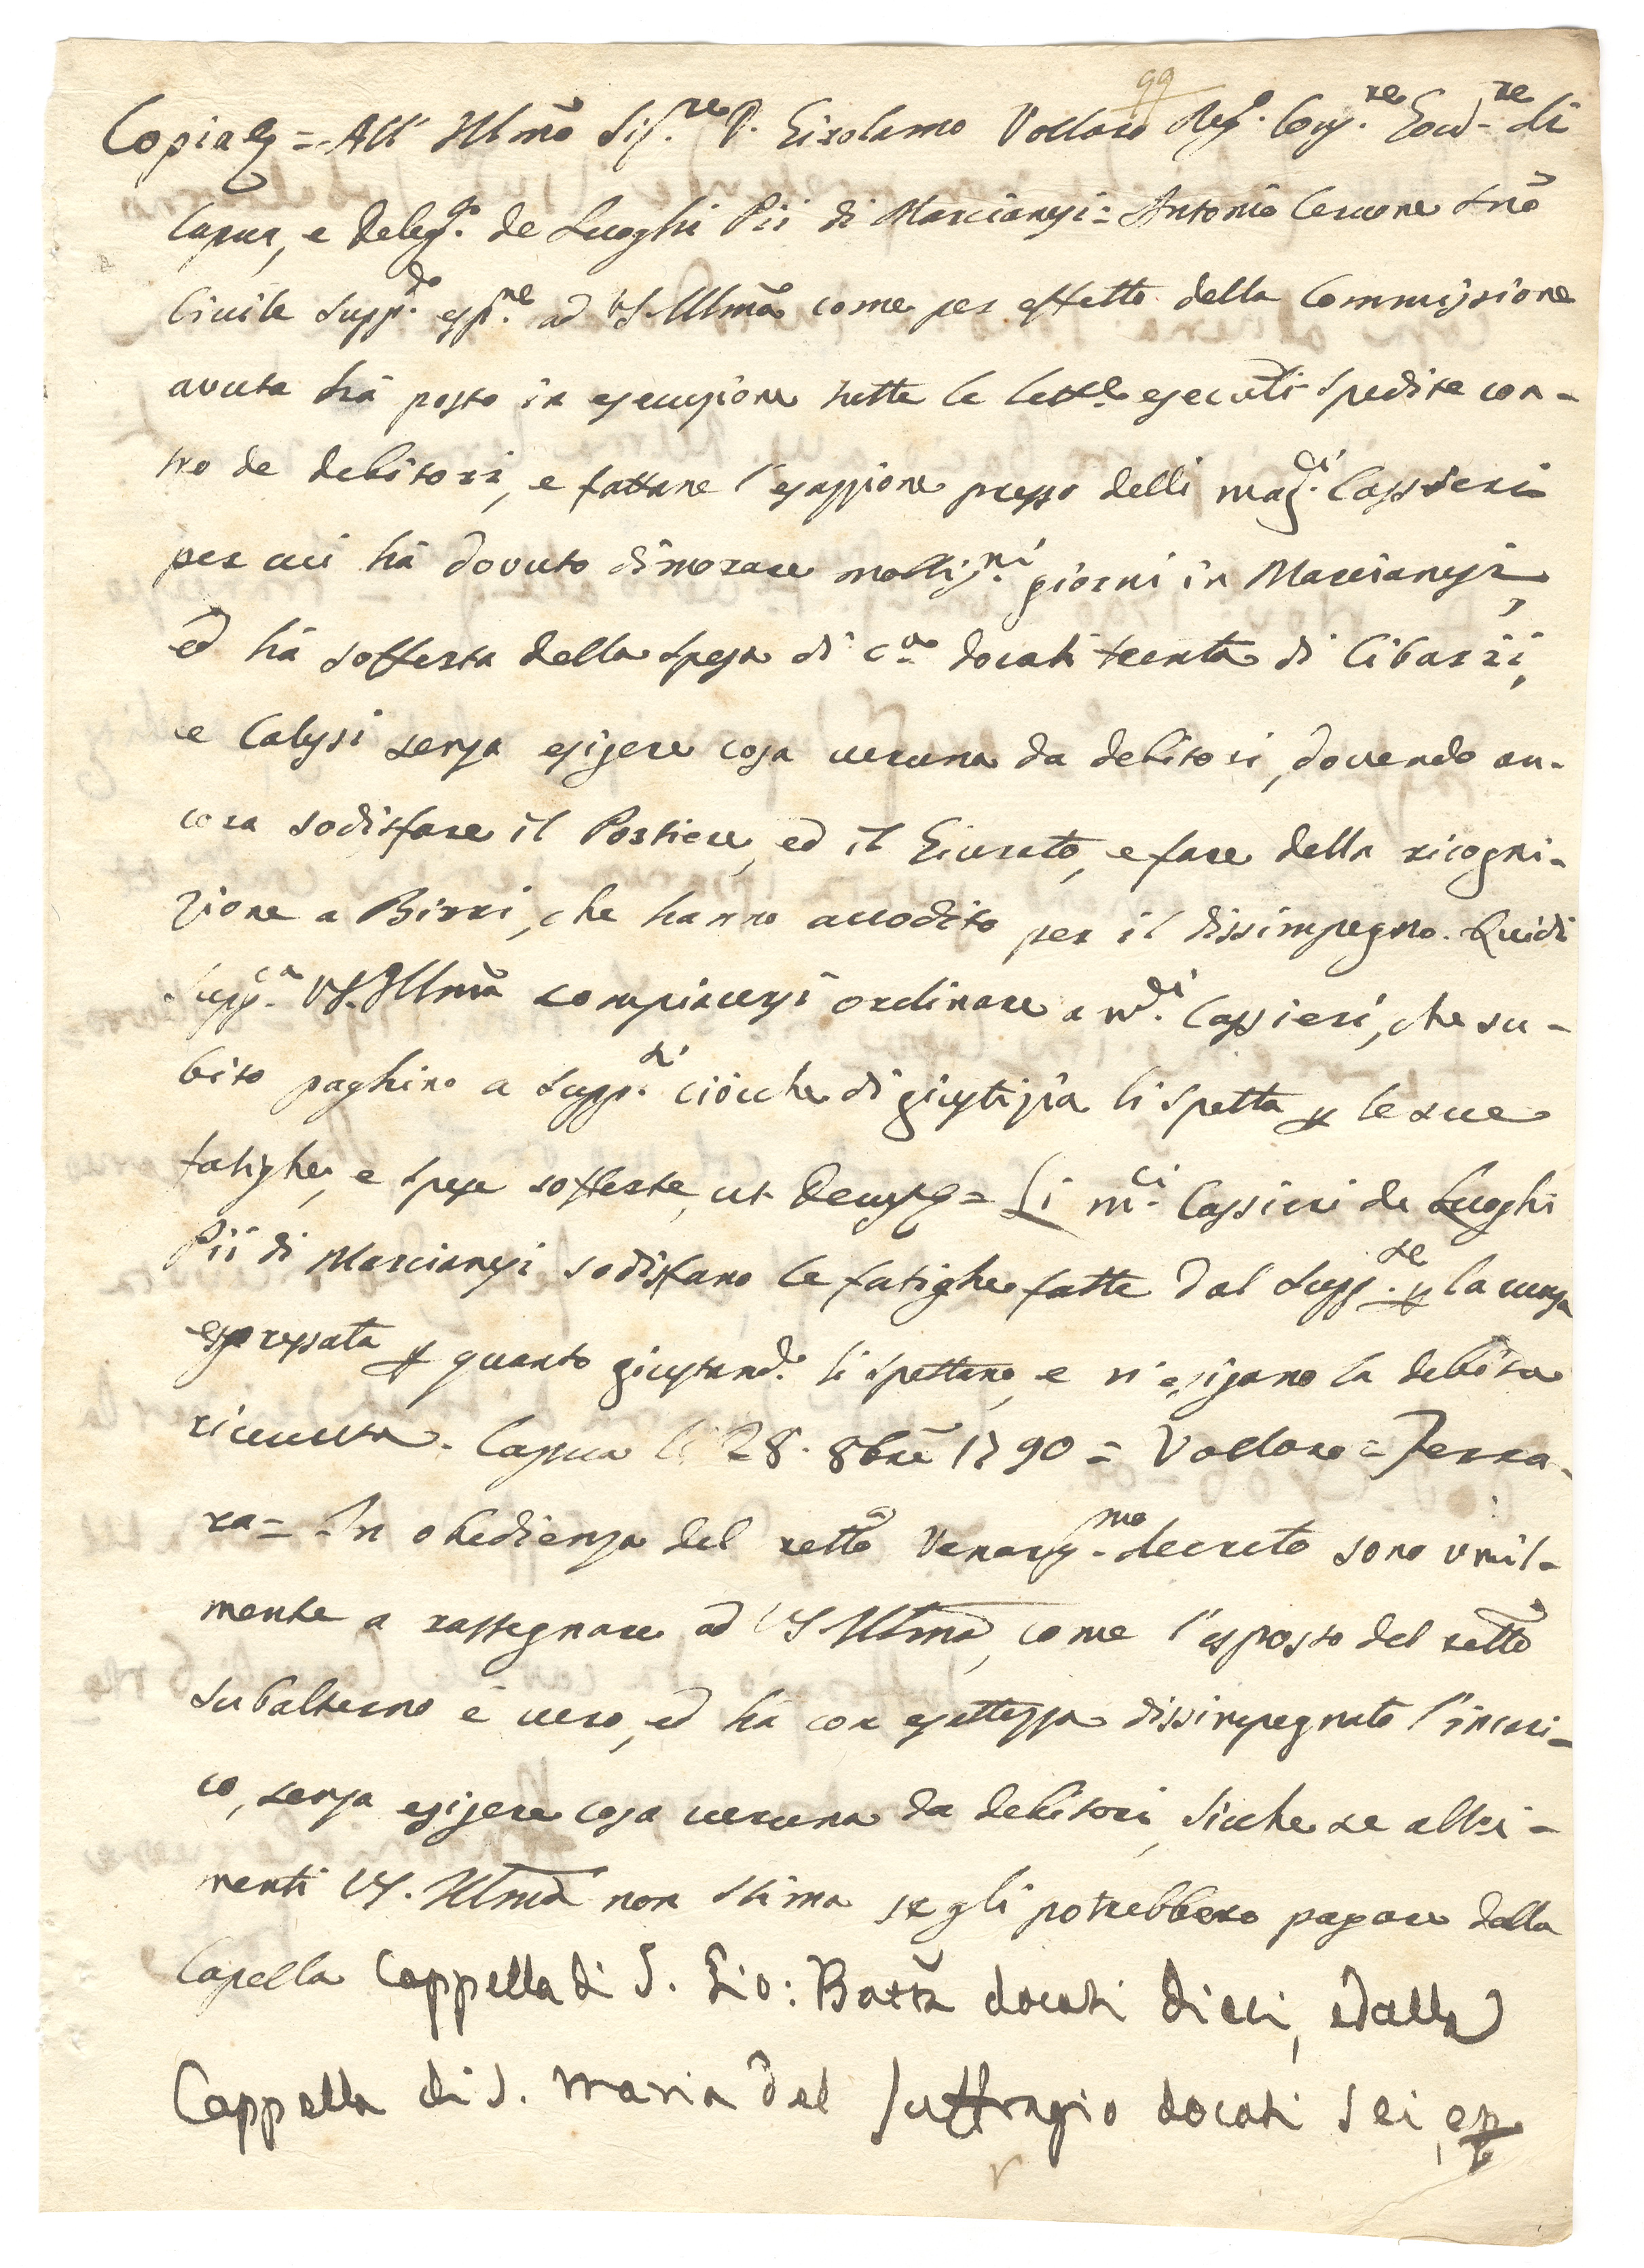 99
Copia = All' Illmõ Sig.re D. Girolamo Vollaro Reg.o Con.re Gov.re di
Capua, e Deleg.to de Luoghi Pii di Marcianesi = Antonio Cerione
Civile Supp.do esp.ne ad VS. Illmã come per effetto della Commissione
avuta hà posto in esecuzione tutte le lett.e esecuti spedite con-
tro de debitori, e fattane l'esazzione presso delli mag.ci Cassieri
per cui hà dovuto dimorare moltiss.mi giorni in Marcianesi,
ed hà sofferta della spesa di c.a docati trenta di Cibarii,
e Calessi senza esigere cosa veruna da debitori, dovendo an-
cora sodisfare il Portiere, ed il Giurato, e fare della ricogni-
zione a Birri, che hanno accodito per il dissimpegno. Quidi
Supp.ca VS. Illmã compiacersi ordinare a m.ci Cassieri, che su-
bito paghino a Supp.te ciocche di giustizia li spetta p le sue
fatighe, e spese sofferte, ut Deus = Li m.ci Cassieri de Luoghi
Pii di Marcianesi sodisfano le fatighe fatte dal Supp.te p la causa
espressata p quanto giustam.e li spettano, e n'esigano la debita
riceuta. Capua li 28. 8brẽ 1790 = Vollaro = Ferra-
ra = In obedienza del rettõ Veneratis.mo decreto sono umil-
mente a rassegnare ad VS Illmã, come l'esposto del rettõ
subalterno è vero, ed hà con esattezza dissimpegnato l'incari-
co, senza esigere cosa veruna da debitori, sicche se altri-
menti VS. Illmã non stima se gli potrebbero pagare dalla
Capella Cappella di S. Gio: Battã docati dieci, e dalla
Cappella di S. Maria del Suffragio docati sei, e p